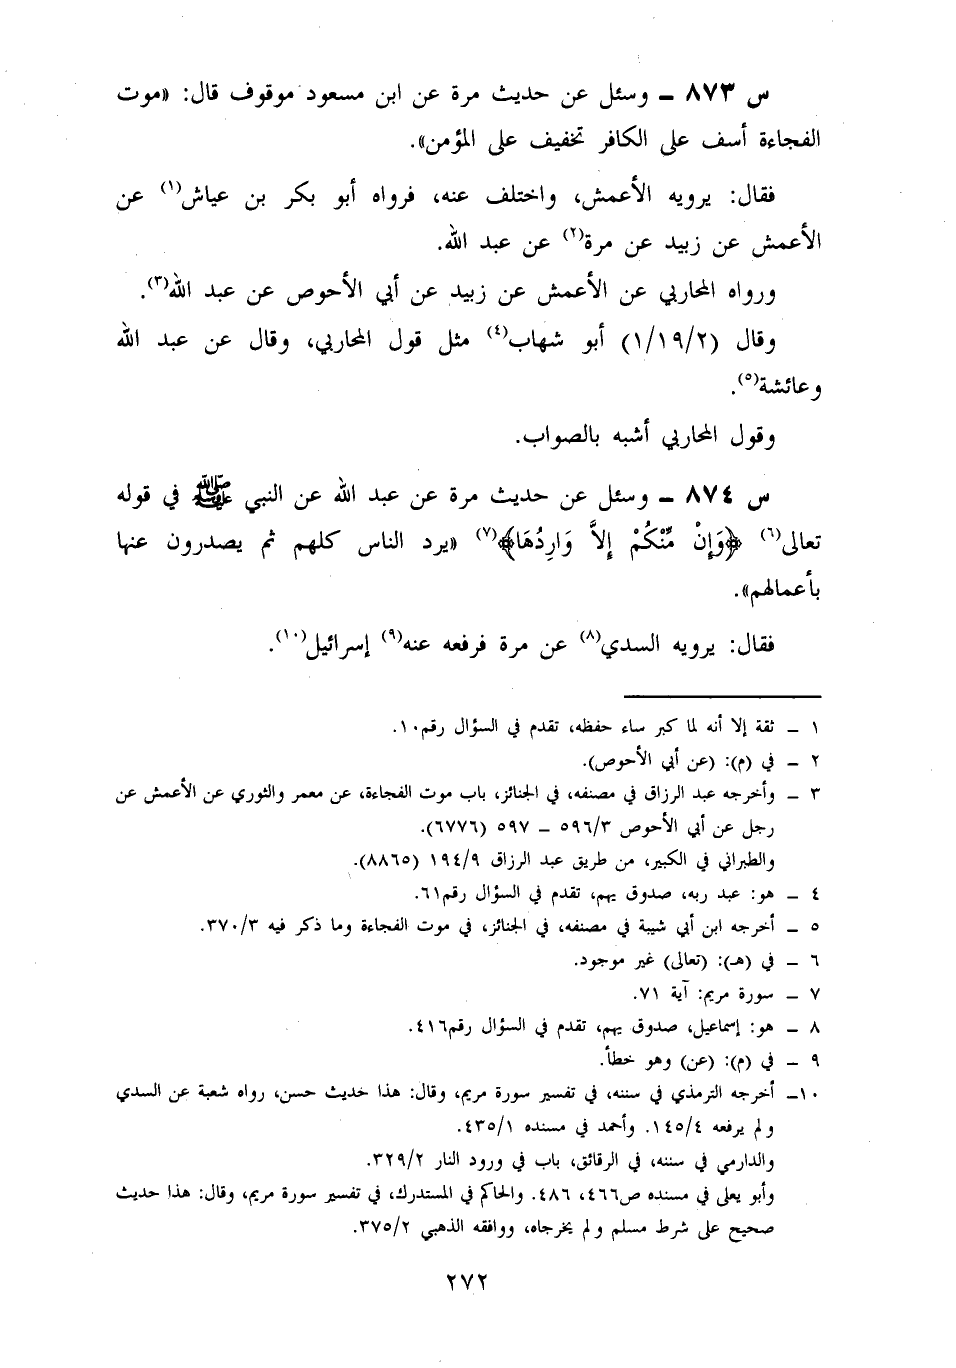 س ٨٧٣ ـ وسئل عن حديث مرة عن ابن مسعود موقوف قال: «موت
الفجاءة أسف على الكافر تخفيف على المؤمن».
فقال: يرويه الأعمش، واختلف عنه، فرواه أبو بكر بن عياش(١) عن
الأعمش عن زبيد عن مرة(٢) عن عبد الله.
ورواه المحاربي عن الأعمش عن زبيد عن أبي الأحوص عن عبد الله(٣).
وقال (١/١٩/٢) أبو شهاب(٤) مثل قول المحاربي، وقال عن عبد الله
وعائشة(٥).
وقول المحاربي أشبه بالصواب.
س ٨٧٤ ـ وسئل عن حديث مرة عن عبد الله عن النبي ﷺ في قوله
تعالى(٦) ﴿وَإِنْ مِّنْكُمْ إِلاَّ وَارِدُهَا﴾(٧) «يرد الناس كلهم ثم يصدرون عنها
بأعمالهم».
فقال: يرويه السدي(٨) عن مرة فرفعه عنه(٩) إسرائيل(١٠).
١ ـ ثقة إلا أنه لما كبر ساء حفظه، تقدم في السؤال رقم١٠.
٢ ـ في (م): (عن أبي الأحوص).
٣ ـ وأخرجه عبد الرزاق في مصنفه، في الجنائز، باب موت الفجاءة، عن معمر والثوري عن الأعمش عن
رجل عن أبي الأحوص ٥٩٦/٣ ـ ٥٩٧ (٦٧٧٦).
والطبراني في الكبير، من طريق عبد الرزاق ١٩٤/٩ (٨٨٦٥).
٤ ـ هو: عبد ربه، صدوق يهم، تقدم في السؤال رقم٦١.
٥ ـ أخرجه ابن أبي شيبة في مصنفه، في الجنائز، في موت الفجاءة وما ذكر فيه ٣٧٠/٣.
٦ ـ في (هـ): (تعالى) غير موجود.
٧ ـ سورة مريم: آية ٧١.
٨ ـ هو: إسماعيل، صدوق يهم، تقدم في السؤال رقم٤١٦.
٩ ـ في (م): (عن) وهو خطأ.
١٠ـ أخرجه الترمذي في سننه، في تفسير سورة مريم، وقال: هذا حديث حسن، رواه شعبة عن السدي
ولم يرفعه ١٤٥/٤. وأحمد في مسنده ٤٣٥/١.
والدارمي في سننه، في الرقائق، باب في ورود النار ٣٢٩/٢.
وأبو يعلى في مسنده ص٤٦٦، ٤٨٦. والحاكم في المستدرك، في تفسير سورة مريم، وقال: هذا حديث
صحيح على شرط مسلم ولم يخرجاه، ووافقه الذهبي ٣٧٥/٢.
٢٧٢